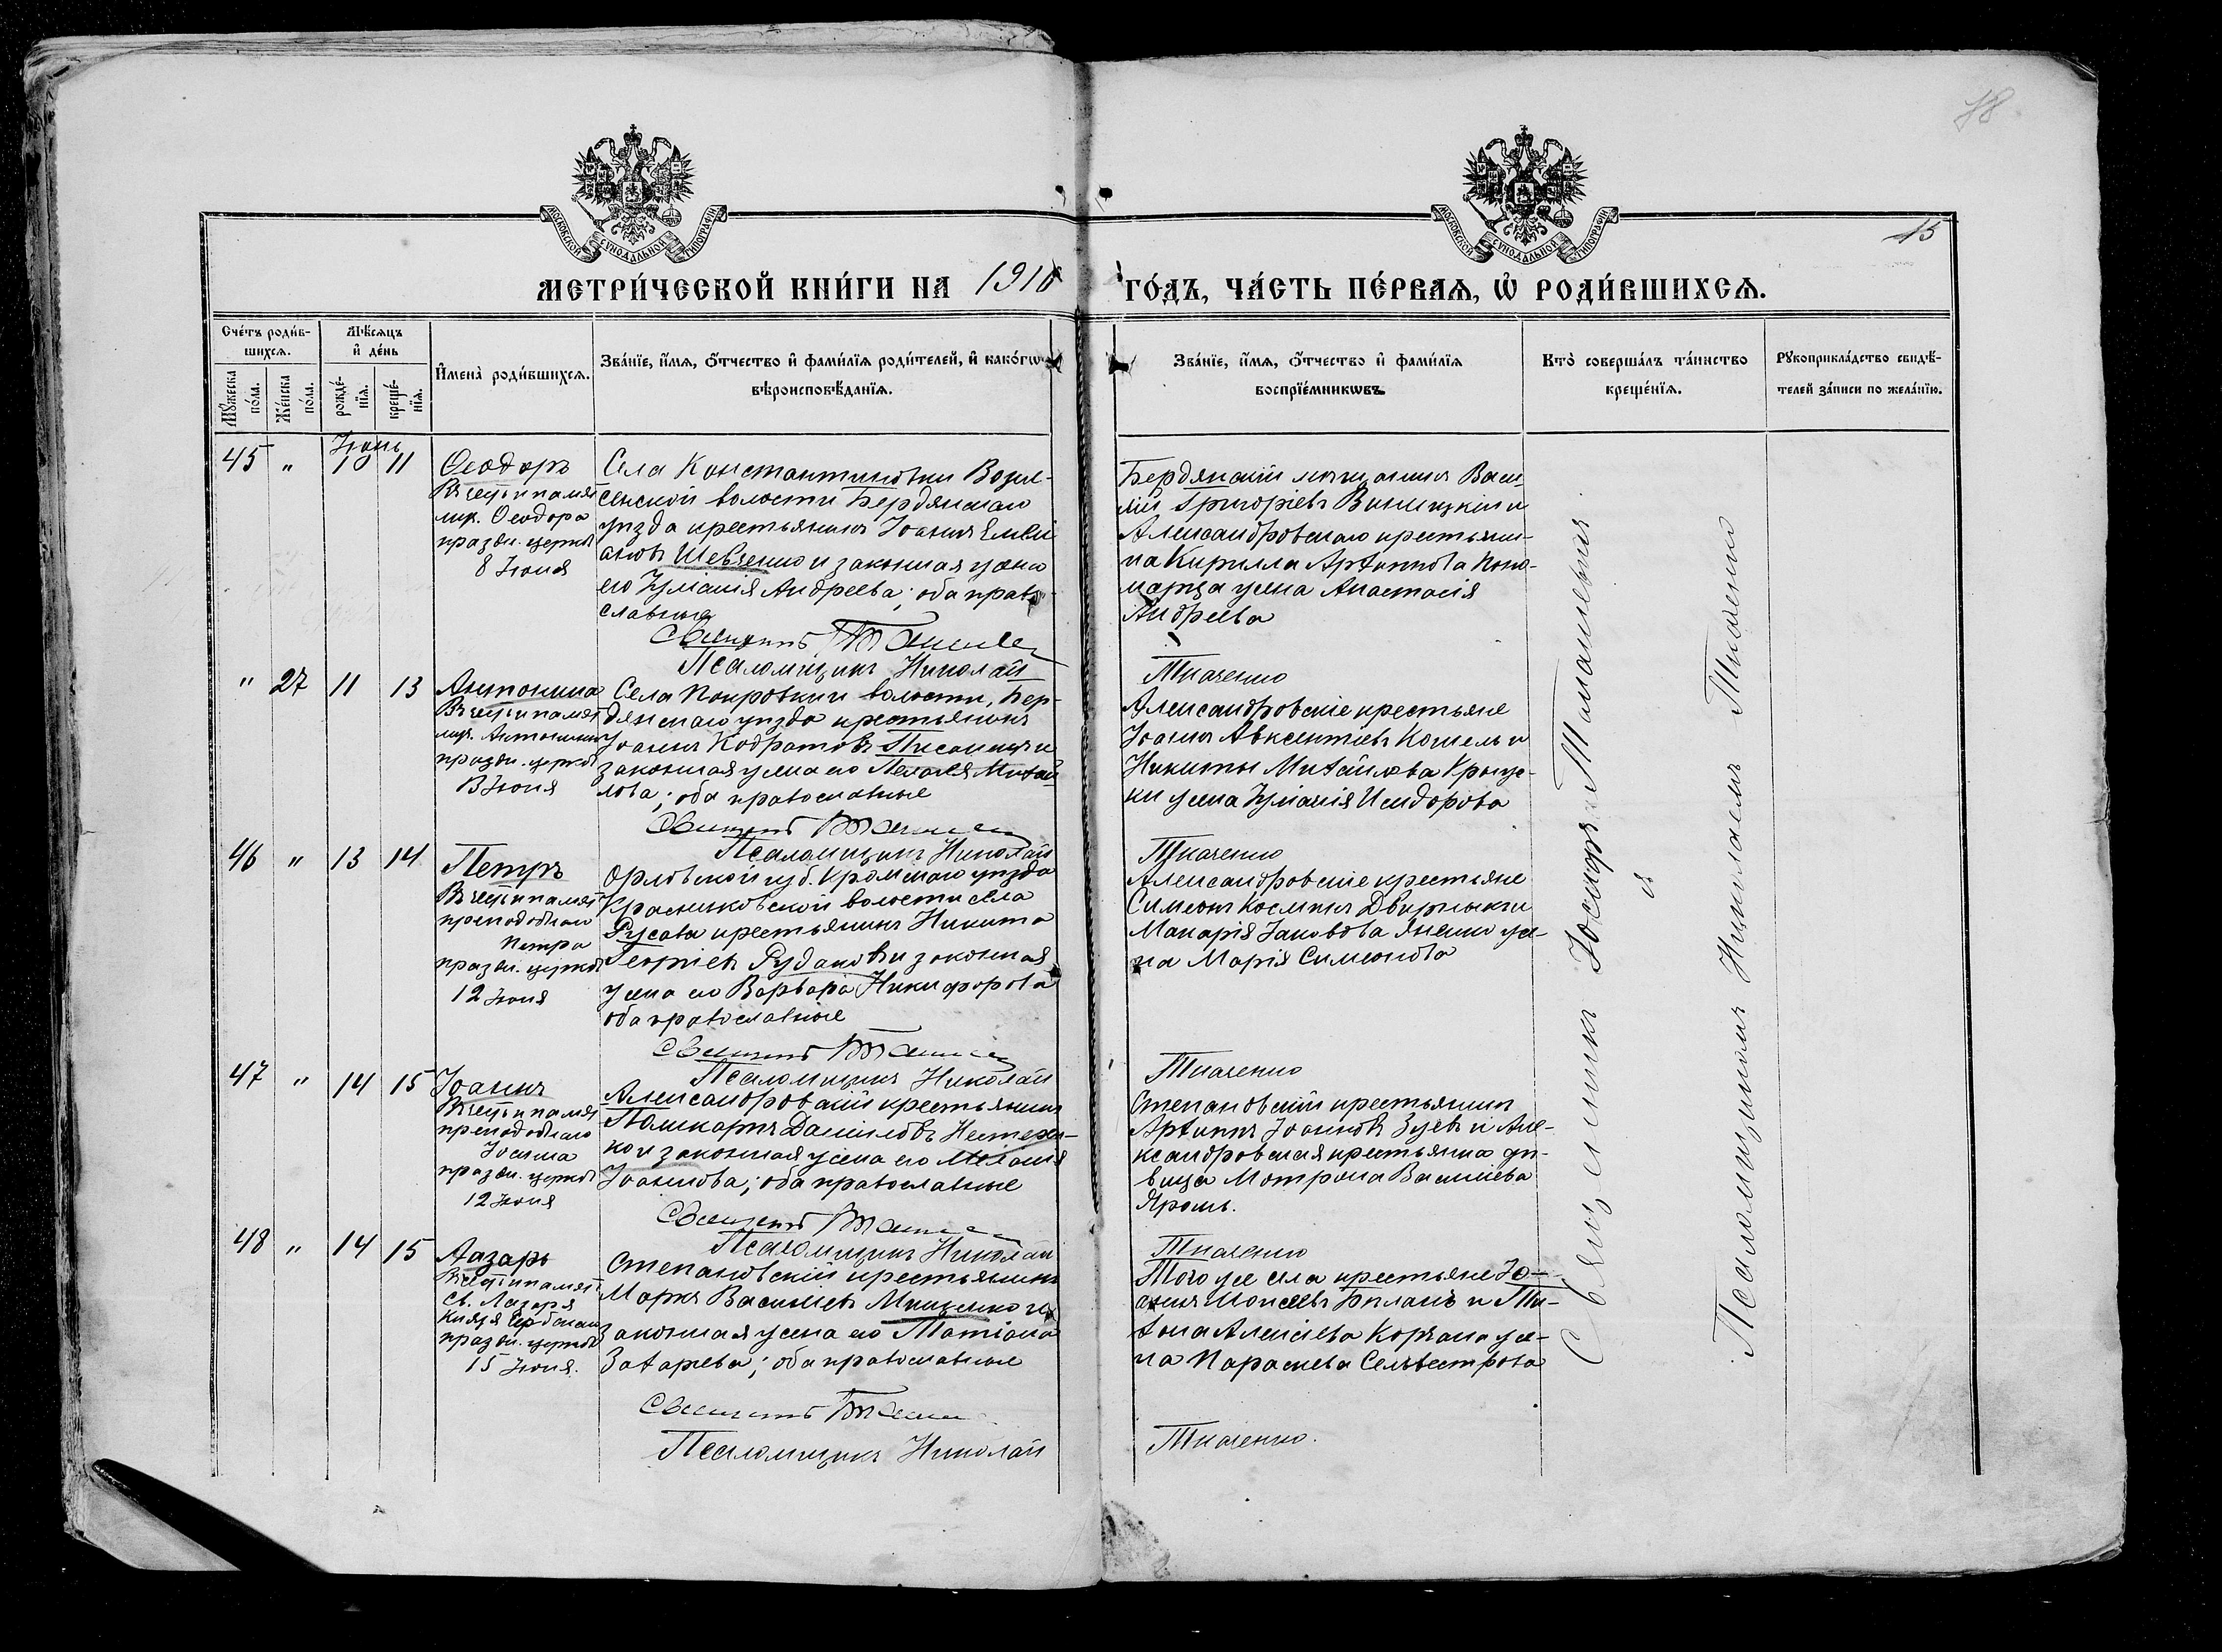 78
МОСКОВСКОЙ СУНОДАЛЬНОЙ ТИПОГРАФІИ
МОСКОВСКОЙ СУНОДАЛЬНОЙ ТИПОГРАФІИ
15
МЕТРИ́ЧЕСКОЙ КНИ́ГИ НА 1910
ГО́ДЪ, ЧА́СТЬ ПЕ́РВАѦ, Ѡ҆ РОДИ́ВШИХСѦ.
Сче́тъ роди́в-
шихсѧ.
Мѣ́сѧцъ
и҆ де́нь
Мꙋ́жеска
по́ла.
Же́нска
по́ла.
рожде́-
нїѧ.
креще́-
нїѧ.
И҆мена̀ роди́вшихсѧ.
Зва́нїе, и҆́мѧ, ѻ҆́тчество и҆ фами́лїѧ роди́телей, и҆ како́гѡ
вѣроисповѣ́данїѧ.
Зва́нїе, и҆́мѧ, ѻ҆́тчество и҆ фами́лїѧ
воспрїе́мникѡвъ
Кто̀ соверша́лъ та́инство
креще́нїѧ.
Рꙋкоприкла́дство свидѣ́-
телей за́писи по жела́нїю.
Іюнь
45 " 10 11
Ѳеодоръ
Въ честь и памят
муч. Ѳеодора
праздн. церков
8 Іюня
Села Константиновки Возне-
сенской волости Бердянскаго
уѣзда крестьянинъ Іоаннъ Емели
ановъ Шевченко и законная жена
его Іуліанія Андреева; оба право
славные
Священникъ
Псаломщикъ Николай
Бердянскій мѣщанинъ Васи
лій Григоріевъ Виницкій и
Александровскаго крестьяни-
на Кирилла Архипова Поно-
маря жена Анастасія
Андреева
Ткаченко
" 27 11 13
Антонина
Въ честь и памят
муч. Антонины
праздн. церков
Іюня
Села Покровки и волости, Бер-
дянскаго уѣзда крестьянинъ
Іоаннъ Кодратовъ и
законная жена его Пелагія Михай
лова; оба православные
Священникъ
Псаломщикъ Николай
Александровскіе крестьяне
Іоаннъ Авксентіевъ Кошель и
Никиты Михайлова
ки жена Іуліанія Исидорова
Ткаченко
46 " 13 14
Петръ
Въ честь и памят
преподобнаго
Петра
праздн. церков
12 Іюня
Орловской губ. Кромскаго уѣзда
волости села
Русова крестьянинъ Никита
Георгіевъ Рудаковъ и законная
жена его Варвара Никифорова
оба православные
Священникъ
Псаломщикъ Николай
Александровскіе крестьяне
Симеонъ Косминъ и
Макарія Іаковова Яненко же-
на Марія Симеонова
Ткаченко
47 " 14 15
Іоаннъ
Въ честь и памят
преподобнаго
Іоанна
праздн. церков
12 Іюня
Александровскій крестьянинъ
Поликарпъ Даниловъ Нестерен-
ко и законная жена его Меланія
Іоаннова; оба православные
Священникъ
Псаломщикъ Николай
Степановскій крестьянинъ
Архипъ Іоанновъ Зуевъ и Але-
ксандровская крестьянка дѣ-
вица Матрона Василіева
Яромъ.
Ткаченко
48 " 14 15
Лазарь
Въ честь и памят
Св. Лазаря
Князя Сербскаго
праздн. церков
15 Іюня.
Степановскій крестьянинъ
Маркъ Василіевъ Мищенко и
законная жена его Татіана
Захаріева; оба православные
Священникъ
Псаломщикъ Николай
Того же села крестьяне Іо-
аннъ Моисеевъ Биланъ и Ти-
хона Алексіева Корчана же-
на Параскева Селивестрова
Ткаченко.
Священникъ Іосифъ
и
Псаломщикомъ Николаемъ Ткаченко